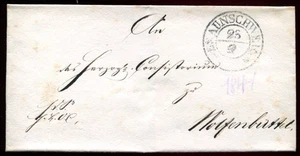 BRAUNSCHWEIG
25
2
An
das Herzogl. Consistorium
zu
1847
Wolfenbüttel.